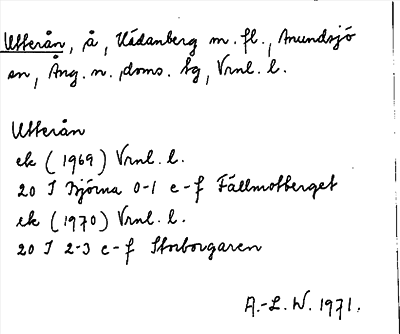 Utterån, å, Kådanberg m. fl., Anundsjö
sn, Ång. n. doms. tg, Vrnl. l.
Utterån
ek (1969) Vrnl. l.
20 I Björna 0-1 e-f Fällmotberget
ek (1970) Vrnl. l.
20 I 2-3 e-f Storborgaren
A.-L. W. 1971.